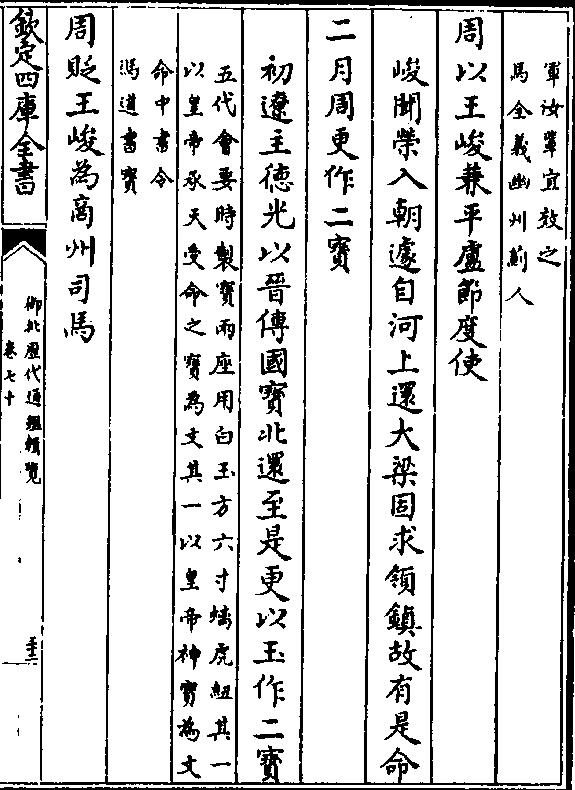 軍汝軰宜效之
馬全義幽州薊人
周以王峻兼平盧節度使
峻聞榮入朝遽自河上還大梁固求領鎮故有是命
二月周更作二寶
初遼主德光以晉傳國寶北還至是更以玉作二寶
五代會要時製寶兩座用白玉方六寸螭虎紐其一
以皇帝承天受命之寶為文其一以皇帝神寶為文
命中書令
馮道書寶
周貶王峻為商州司馬
欽定四庫全書
御批歷代通鑑輯覽
卷七十